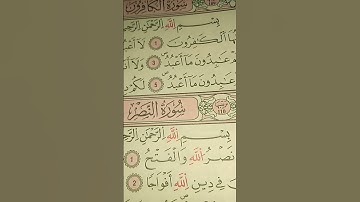 سُورَةُ الكَافِرُونَ
بِسْمِ اللَّهِ الرَّحْمَٰنِ الرَّحِيمِ
الْكَافِرُونَ ١ لَا أَعْبُدُ
عَابِدُونَ مَا أَعْبُدُ ٣ وَلَا أَنَا
عَابِدُونَ مَا أَعْبُدُ ٥ لَكُمْ
سُورَةُ النَّصْرِ
بِسْمِ اللَّهِ الرَّحْمَٰنِ الرَّحِيمِ
نَصْرُ اللَّهِ وَالْفَتْحُ ١
فِي دِينِ اللَّهِ أَفْوَاجًا ٢